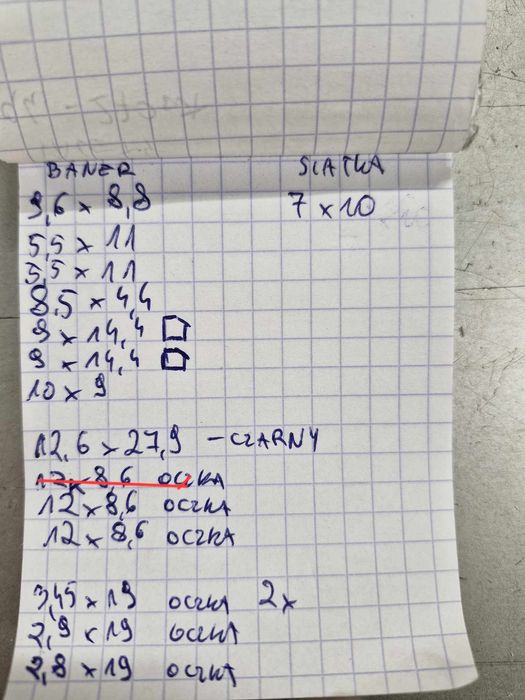 BANER SIATKA
9,6 x 8,8 7 x 10
5,5 x 11
5,5 x 11
8,5 x 4,4
9 x 14,4
9 x 14,4
10 x 9
12,6 x 27,9 - CZARNY
12 x 8,6 OCZKA
12 x 8,6 OCZKA
12 x 8,6 OCZKA
3,45 x 19 OCZKA 2x
2,9 x 19 OCZKA
2,8 x 19 OCZKA